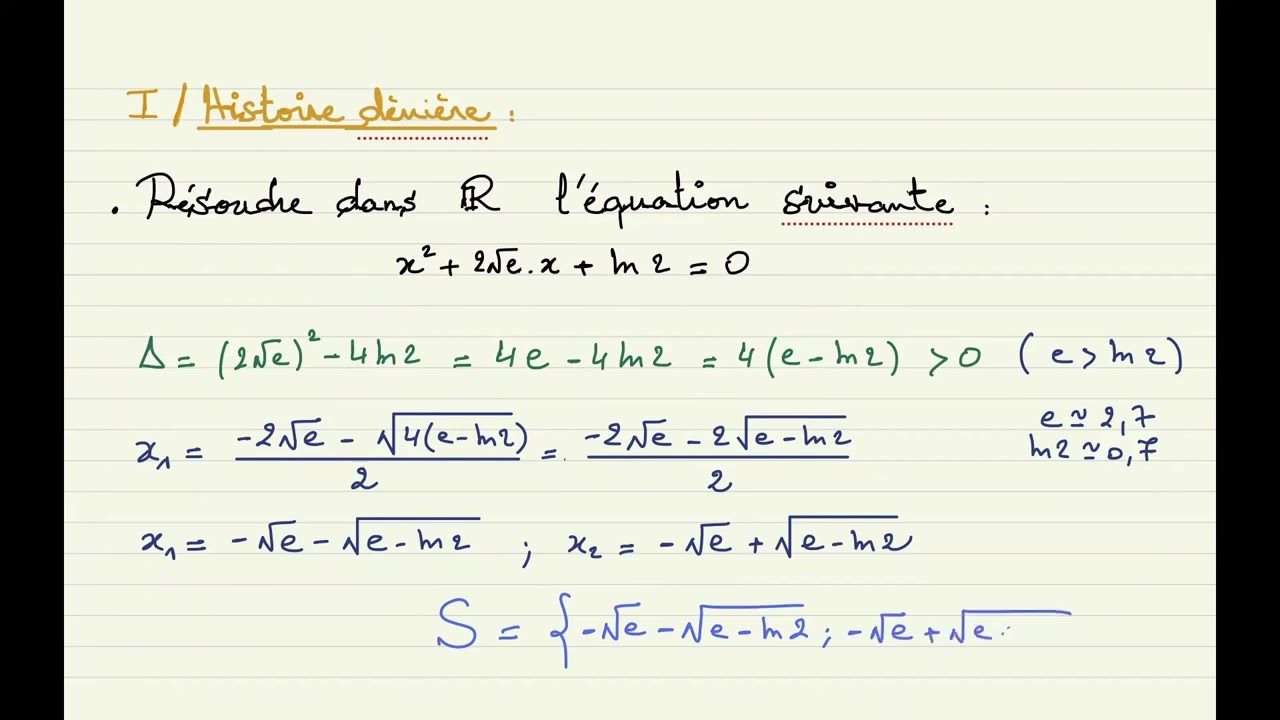 I / Histoire dernière :
. Résoudre dans ℝ l'équation suivante :
x² + 2√e . x + ln 2 = 0
Δ = (2√e)² - 4 ln 2 = 4e - 4 ln 2 = 4(e - ln 2) > 0 (e > ln 2)
x₁ = (-2√e - √(4(e - ln 2)))/2 = (-2√e - 2√(e - ln 2))/2
e ≃ 2,7
ln 2 ≃ 0,7
x₁ = -√e - √(e - ln 2) ; x₂ = -√e + √(e - ln 2)
S = { -√e - √(e - ln 2) ; -√e + √e -